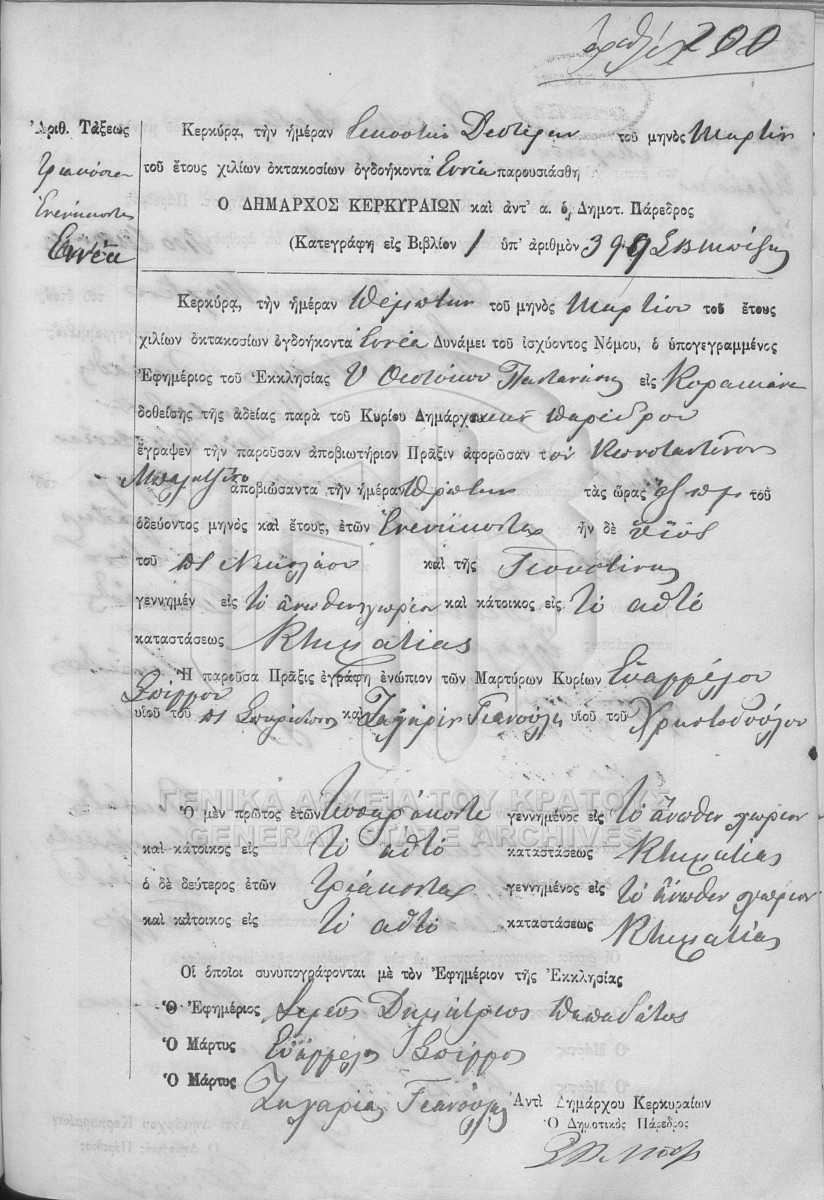 200
Ἀριθ. Τάξεως
Τριακόσια
Ἐνενήκοντα
Ἐννέα
Κερκύρᾳ, τὴν ἡμέραν Εικοστήν Δευτέραν τοῦ μηνὸς Μαρτίου
τοῦ ἔτους χιλίων ὀκτακοσίων ὀγδοήκοντα Ἐννέα παρουσιάσθη
Ὁ ΔΗΜΑΡΧΟΣ ΚΕΡΚΥΡΑΙΩΝ καὶ ἀντ' α. ὁ Δημοτ. Πάρεδρος
(Κατεγράφη εἰς Βιβλίον 1 ὑπ' ἀριθμὸν 399
Κερκύρᾳ, τὴν ἡμέραν Πέμπτην τοῦ μηνὸς Μαρτίου τοῦ ἔτους
χιλίων ὀκτακοσίων ὀγδοήκοντα Ἐννέα Δυνάμει τοῦ ἰσχύοντος Νόμου, ὁ ὑπογεγραμμένος
Ἐφημέριος τοῦ Ἐκκλησίας Υ Θεοτόκου εἰς Κορακιάνα
δοθείσης τῆς ἀδείας παρὰ τοῦ Κυρίου Δημάρχου Παρέδρου
ἔγραψεν τὴν παροῦσαν ἀποβιωτήριον Πρᾶξιν ἀφορῶσαν τὸν Κωνσταντῖνον
ἀποβιώσαντα τὴν ἡμέραν Πρώτην τὰς ὥρας ἓξ πμ τοῦ
ὁδεύοντος μηνὸς καὶ ἔτους, ἐτῶν Ἐνενήκοντα ἦν δὲ υἱὸς
τοῦ πτ Νικολάου καὶ τῆς Γιουστίνης
γεννημέν εἰς τὸ ἄνωθεν χωρίον καὶ κάτοικος εἰς Τὸ αὐτό
καταστάσεως Κτηματίας
Ἡ παροῦσα Πρᾶξις ἐγράφη ἐνώπιον τῶν Μαρτύρων Κυρίων Εὐαγγέλου
Σπίγγου
υἱοῦ τοῦ πτ Σπυρίδωνος καὶ Ζαχαρία Γιανούλη υἱοῦ τοῦ Χριστοδούλου
ΓΕΝΙΚΑ ΑΡΧΕΙΑ ΤΟΥ ΚΡΑΤΟΥΣ
GENERAL STATE ARCHIVES
Ὁ μὲν πρῶτος ἐτῶν Τεσσαράκοντα γεννημένος εἰς τὸ ἄνωθεν χωρίον
καὶ κάτοικος εἰς Τὸ αὐτό καταστάσεως Κτηματίας
ὁ δὲ δεύτερος ἐτῶν Τριάκοντα γεννημένος εἰς τὸ ἄνωθεν χωρίον
καὶ κάτοικος εἰς Τὸ αὐτό καταστάσεως Κτηματίας
Οἱ ὁποῖοι συνυπογράφονται μὲ τὸν Ἐφημέριον τῆς Ἐκκλησίας
Ὁ Ἐφημέριος Ἱερεὺς Δημήτριος Παπαδάτος
Ὁ Μάρτυς Εὐάγγελος Σπίγγος
Ὁ Μάρτυς Ζαχαρίας Γιανούλης
Ἀντὶ Δημάρχου Κερκυραίων
Ὁ Δημοτικὸς Πάρεδρος